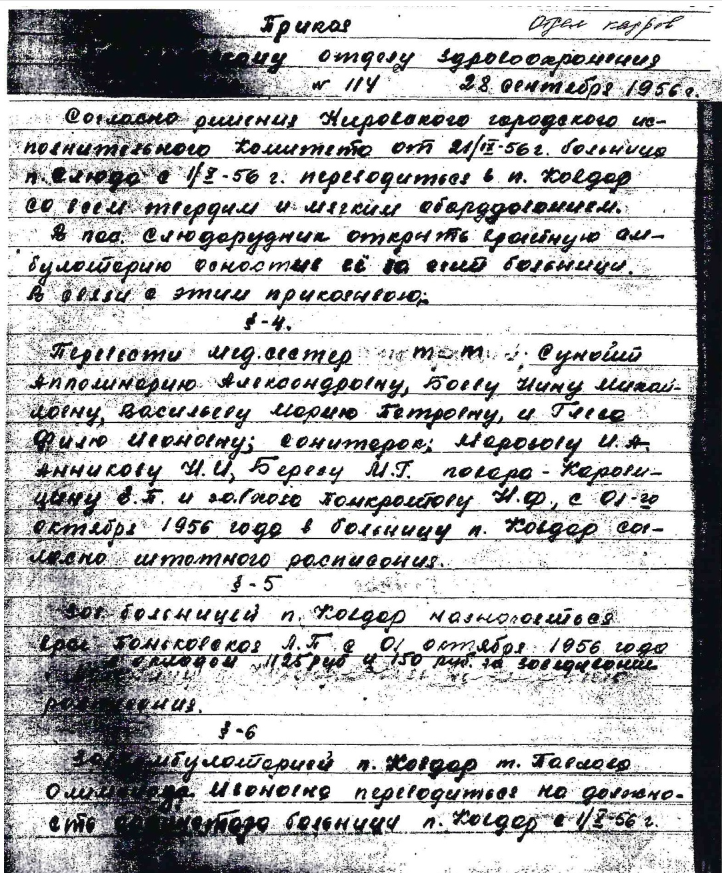 Приказ Отдел кадров
отделу здравоохранения
№ 114 28 сентября 1956 г.
Согласно решения Кировского городского ис-
полнительного Комитета от 21/IX-56 г. больница
п. Слюда с 1/X-56 г. переводиться в п. Ковдор
со всем твердим и мягким оборудованием.
В пос. Слюдорудник открыть врачебную ам-
булаторию её за счет больници.
В связи с этим приказываю:
§-4.
Перевести мед.сестер т-т.
Апполинарию Александровну, Боеву Нину Михай-
ловну, Васильеву Марию Петровну, и
Ивановну; санитарок; Морозову И.А.
Анникову И.И, Береву М.Г. повара -
Е.П. и Понкратову Н.Ф., с 01-го
октября 1956 года в больницу п. Ковдор сог-
ласно штатного расписания.
§-5
Зав. больницей п. Ковдор назначаеться
врач Паньковская Л.П с 01 октября 1956 года
с окладом 1125 руб и 150 руб. за заведивание
§-6
Зав. амбулаторией п. Ковдор т. Павлова
Ивановна переводиться на должно-
сть больници п. Ковдор с 1/X-56 г.